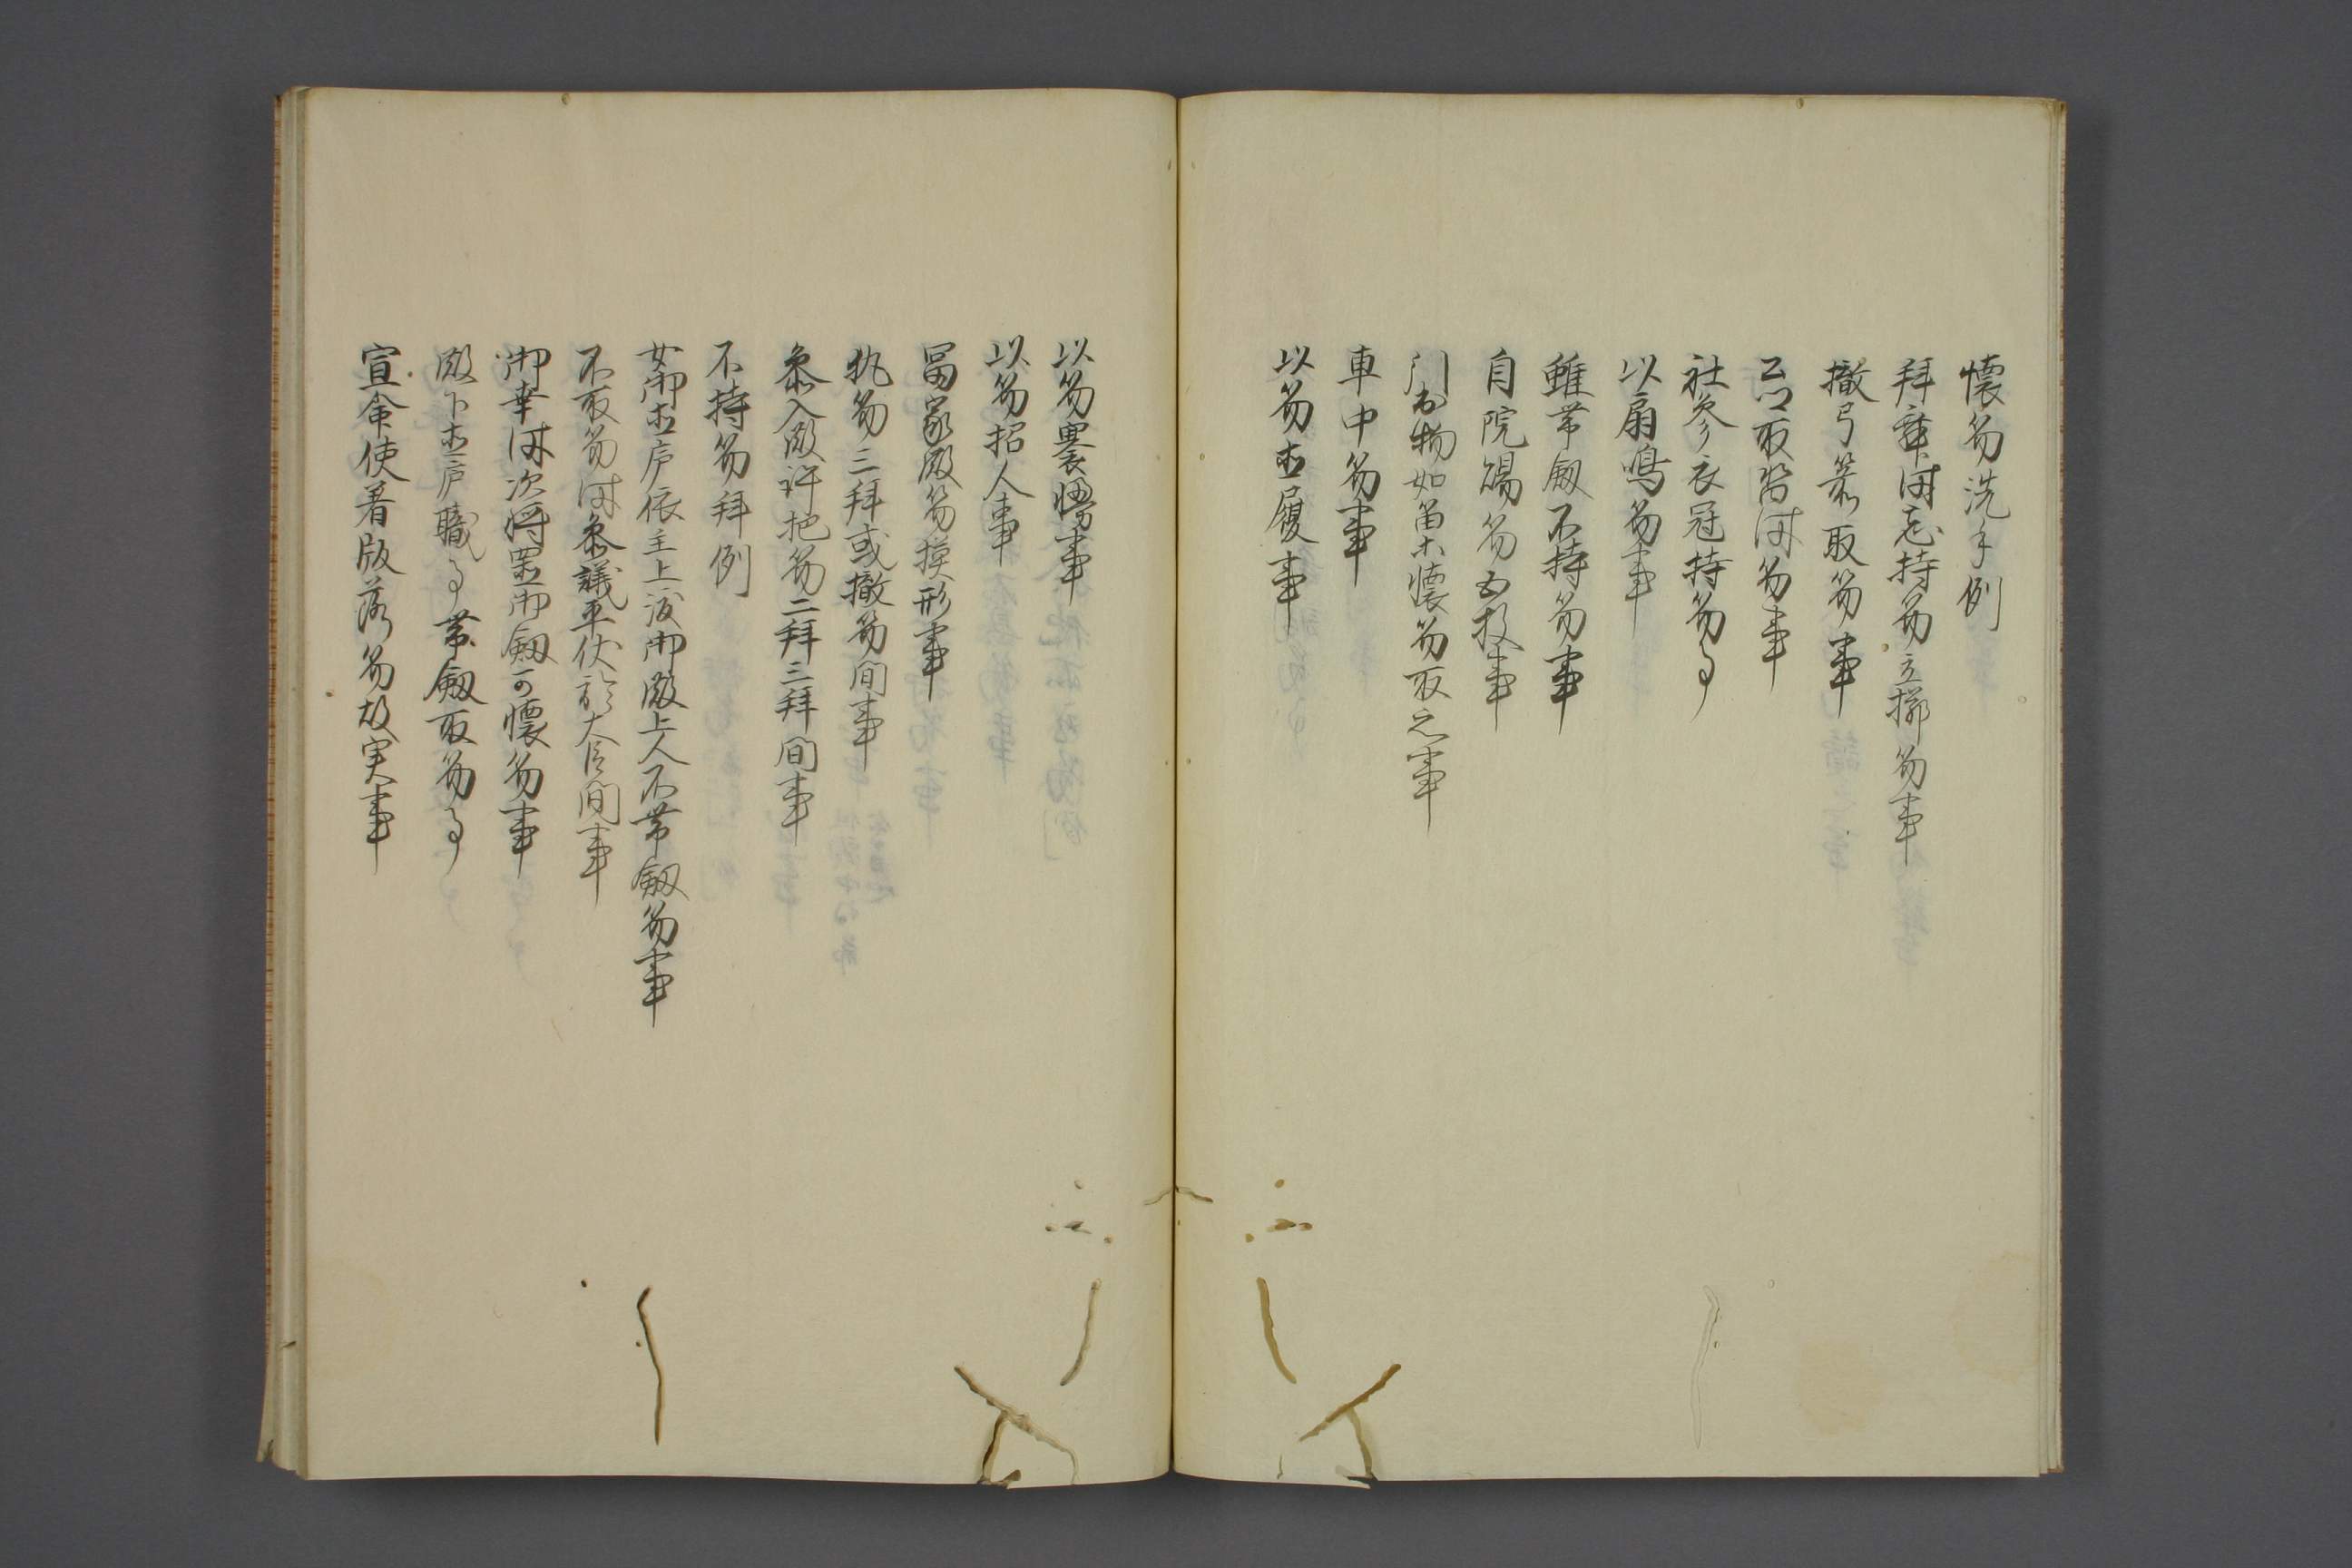 懐笏洗手例
拝舞間忘持笏立揖笏事
撤弓箭取笏事
取時笏事
社参衣冠持笏事
以扇鳴笏事
雖帯剱不持笏事
自院賜笏事
物如笛懐笏取之事
車中笏事
以笏直履事
以笏褰幔事
以笏招人事
冨家殿笏摸形事
執笏三拝或撤笏間事
参入殿許把笏二拝三拝間事
不持笏拝例
女御直廬依主上渡御殿上人不帯剱笏事
不取笏時参議平伏於大臣間事
御幸時次将置御剱可懐笏事
殿下直廬職事帯剱取笏事
宣命使着版落笏故実事